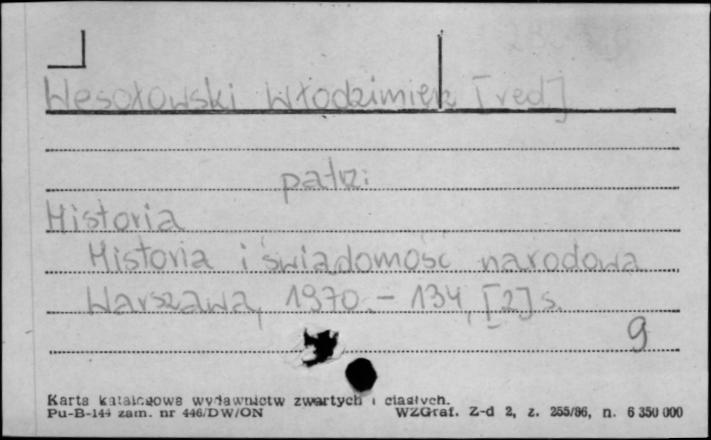 Wesołowski Włodzimierz [red]
patrz:
Historia
Historia i świadomość narodowa
Warszawa, 1970. - 134, [2] s.
9
Karta katalogowa wydawnictw zwartych i ciągłych.
Pu-B-144 zam. nr 446/DW/ON WZGraf. Z-d 2, z. 255/86, n. 6 350 000